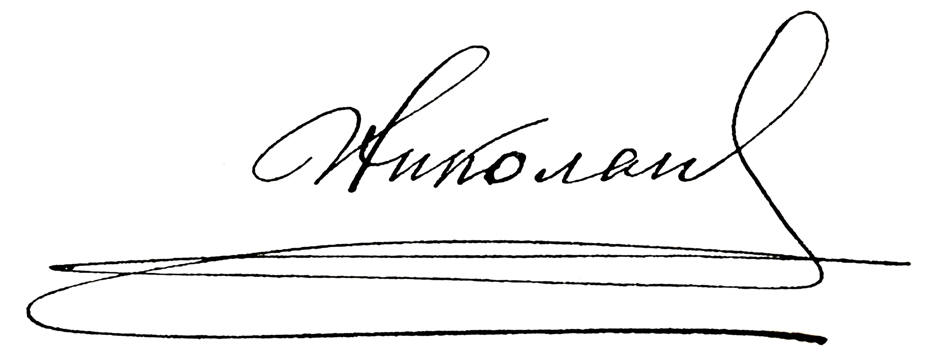 Николай